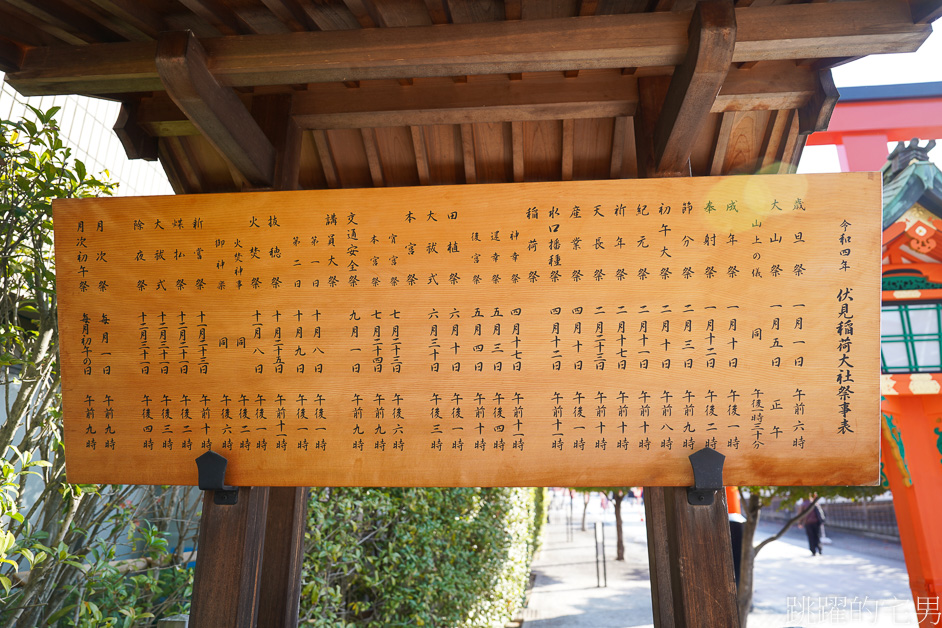 令和四年 伏見稲荷大社祭事表
歳旦祭 一月一日 午前六時
大山祭 一月五日 正午
山上の儀 同 午後一時三十分
成年祭 一月十日 午後一時
奉射祭 一月十二日 午後二時
節分祭 二月三日 午前九時
初午大祭 二月十日 午前八時
紀元祭 二月十一日 午前十時
祈年祭 二月十七日 午前十時
天長祭 二月二十三日 午前十時
産業祭 四月十日 午後一時
水口播種祭 四月十二日 午前十時
稲荷祭
神幸祭 四月十七日 午前十一時
還幸祭 五月三日 午後四時
後宮祭 五月四日 午前十時
田植祭 六月十日 午後一時
大祓式 六月三十日 午後三時
本宮祭
宵宮祭 七月二十三日 午後六時
本宮祭 七月二十四日 午前九時
交通安全祭 九月一日 午前九時
講員大祭
第一日 十月八日 午前十時
第二日 十月九日 午前十時
抜穂祭 十月二十五日 午前十一時
火焚祭 十一月八日 午後一時
火焚神事 同 午後一時
御神楽 同 午後六時
新嘗祭 十一月二十三日 午前十時
煤払祭 十二月二日 午後二時
大祓式 十二月三十一日 午後三時
除夜祭 十二月三十一日 午後四時
月次祭 毎月一日 午前九時
月次初午祭 毎月初午日 午前九時
跳躍的宅男